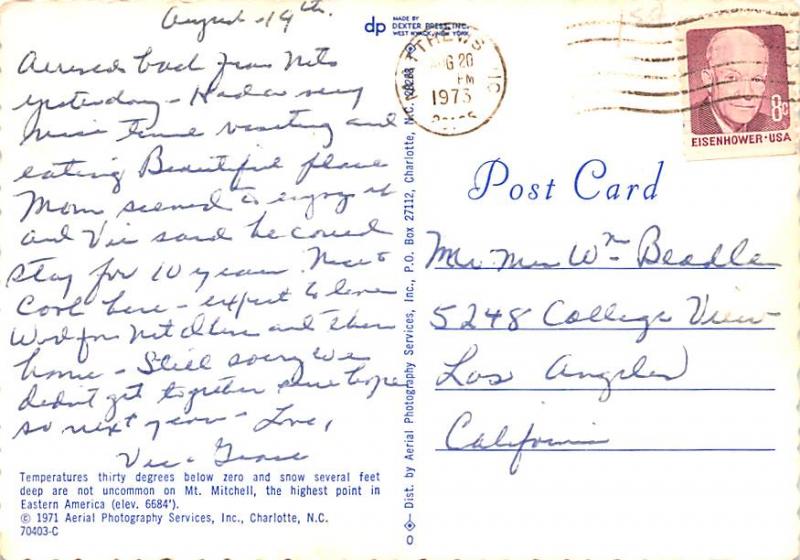 August 19th.
back from
yesterday - Had a very
nice time visiting and
eating Beautiful place
Mom seemed to enjoy it
and Vic said he could
stay for 10 years. Nice +
Cool here - expect to leave
Wed for and then
home - Still sorry we
didn't get together sure hope
so next year - Love,
Vic - Grace
Temperatures thirty degrees below zero and snow several feet
deep are not uncommon on Mt. Mitchell, the highest point in
Eastern America (elev. 6684').
© 1971 Aerial Photography Services, Inc., Charlotte, N.C.
70403-C
dp
MADE BY
DEXTER PRESS, INC.
WEST NYACK, NEW YORK
Dist. by Aerial Photography Services, Inc., P.O. Box 27112, Charlotte, N.C. 28208
AUG 20
PM
1973
8c
EISENHOWER·USA
Post Card
Mr. Mrs Wm Beadle
5248 College View
Los Angeles
California